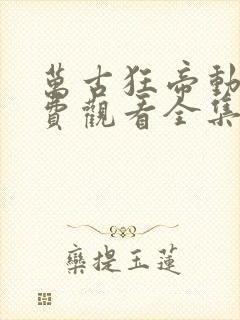 萬古狂帝動
費觀看全集
欒提玉蓮